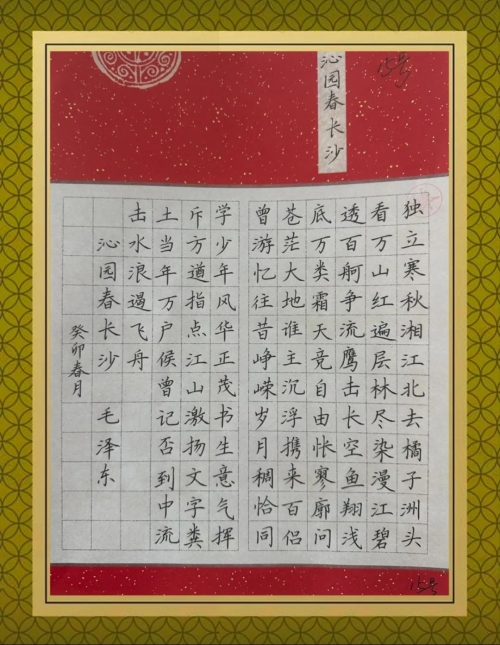 沁园春长沙
15号
独立寒秋湘江北去橘子洲头
看万山红遍层林尽染漫江碧
透百舸争流鹰击长空鱼翔浅
底万类霜天竞自由怅寥廓问
苍茫大地谁主沉浮携来百侣
曾游忆往昔峥嵘岁月稠恰同
学少年风华正茂书生意气挥
斥方遒指点江山激扬文字粪
土当年万户侯曾记否到中流
击水浪遏飞舟
沁园春长沙 毛泽东
癸卯春月
15号